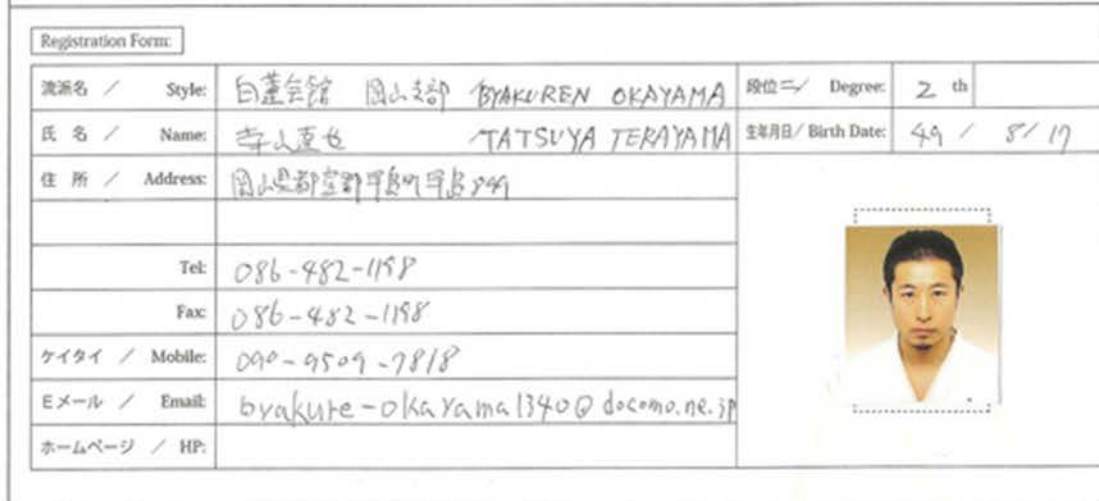 Registration Form:
流派名 / Style: 白蓮会館 岡山支部 BYAKUREN OKAYAMA 段位 / Degree: 2 th
氏名 / Name: 寺山直也 TATSUYA TERAYAMA 生年月日/ Birth Date: 49 / 8/17
住所 / Address: 岡山県都窪郡早島町早島
Tel: 086-482-1198
Fax: 086-482-1198
ケイタイ / Mobile: 090-9509-7818
Eメール / Email: byakure-okayama1340@docomo.ne.jp
ホームページ / HP: